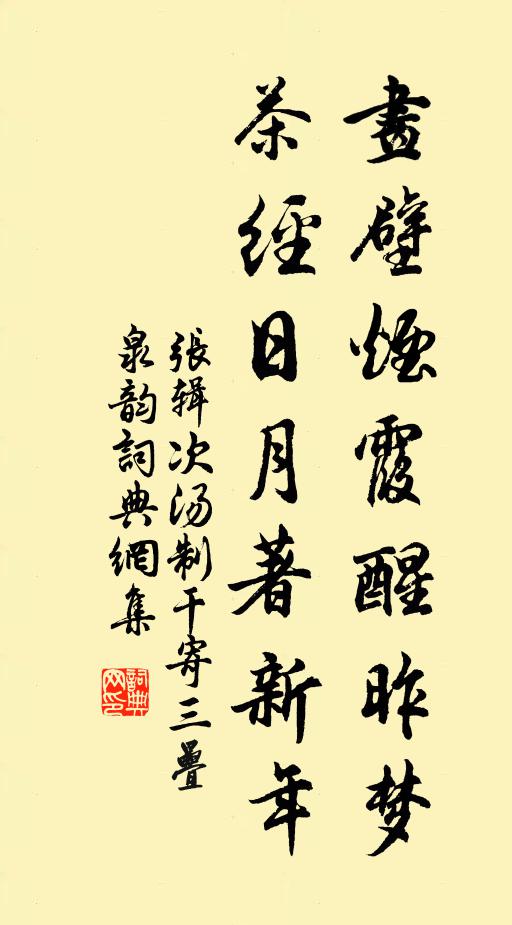 畫壁煙霞醒昨梦
茶經日月著新年
張辑次汤制干寄三疊
泉韵詞典網集
詞典網印